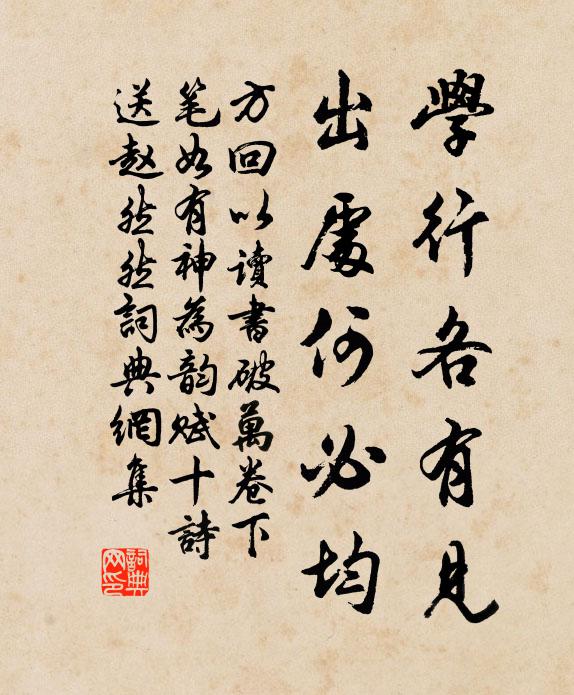 學行各有見
出處何必均
方回以讀書破萬卷下
笔如有神為韵赋十詩
送赵然然詞典網集
詞典网印